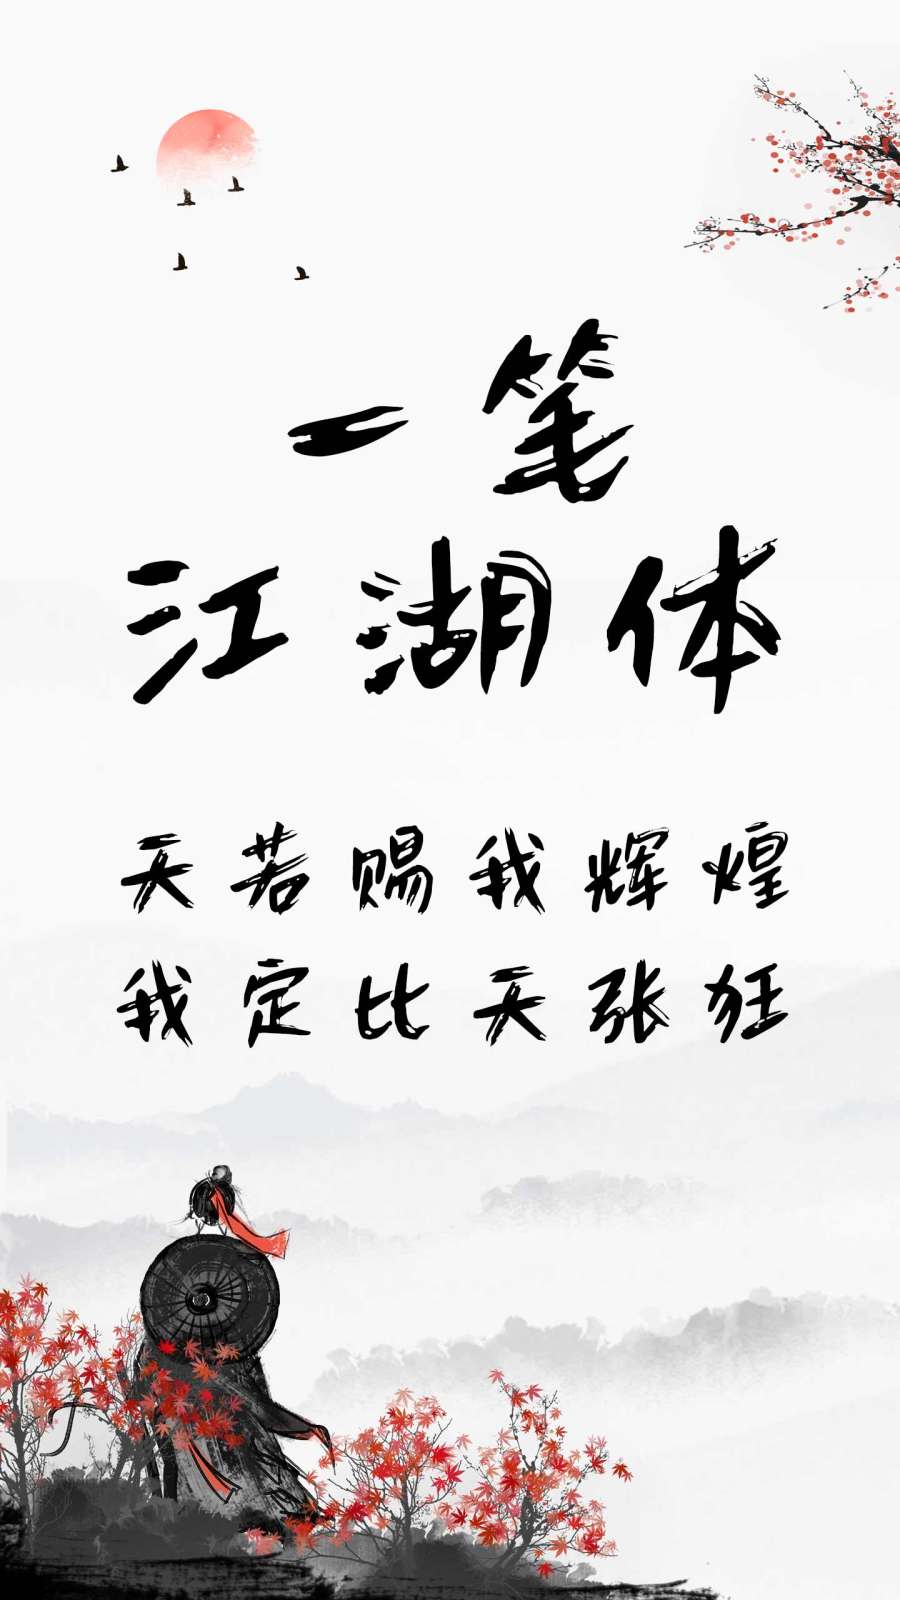 一笔
江湖体
天若赐我辉煌
我定比天张狂